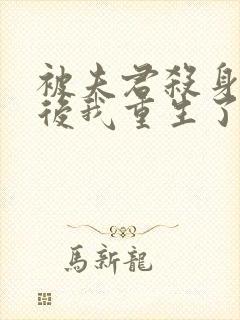 被夫君殺身
後我重生了
馬新龍